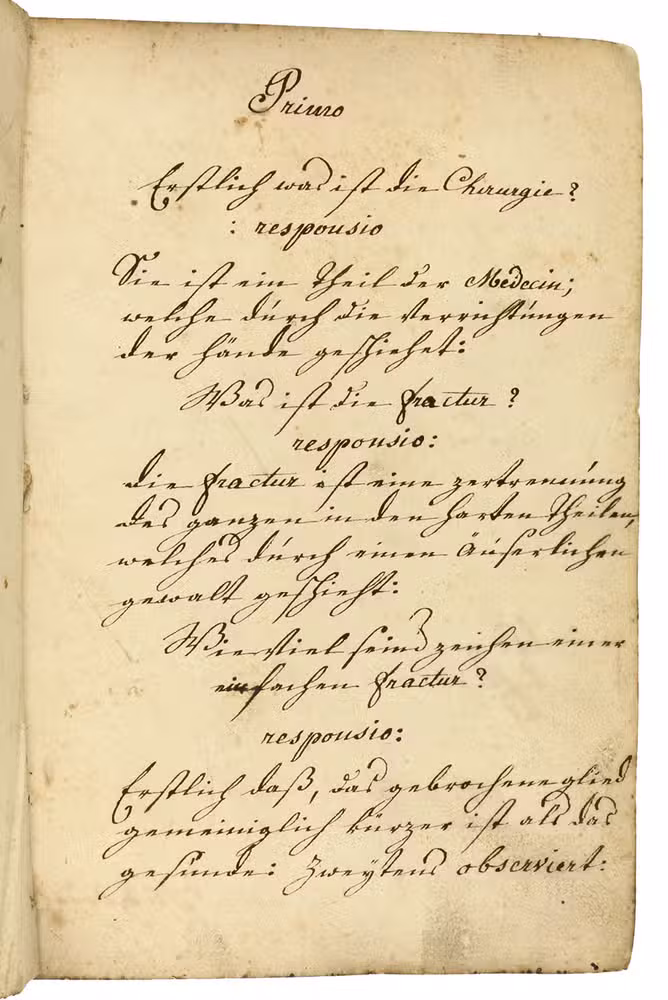 Primo
Erstlich was ist die Chirurgie?
: responsio
Sie ist ein Theil der Medecin;
welche durch die Verrichtungen
der Hände geschiehet:
Was ist die fractur?
responsio:
die fractur ist eine zertrennung
des ganzen in den harten Theilen,
welches durch einen äuserlichen
gewalt geschieht:
Wie Viel seind zeichen einer
einfachen fractur?
responsio:
Erstlich daß, das gebrochene glied
gemeiniglich kürzer ist als das
gesunde: Zweytens observiert: